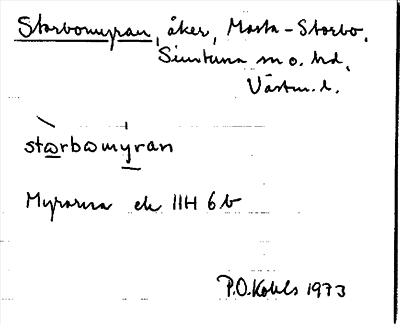 Storbomyran, åker, Mosta-Storbo.
Simtuna sn o. hd.
Västm. l.
stωrbωmýran
Myrarna ek IIH 6b
P.O. Kohls 1973